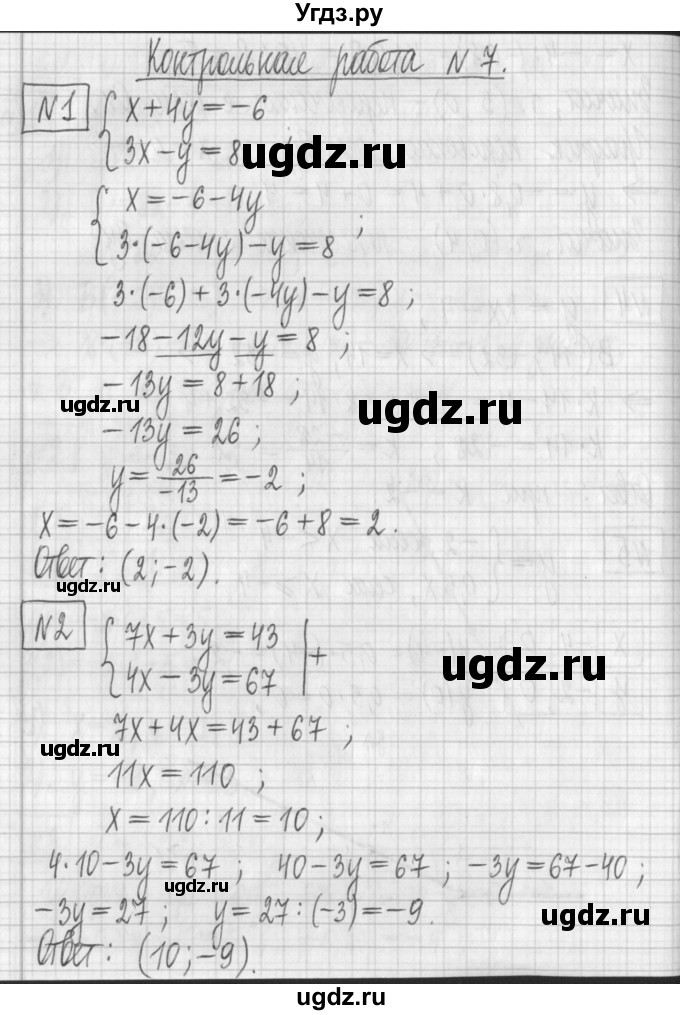 Угдз.ру
Контрольная работа №7.
№1 { x+4y=-6
3x-y=8 ;
ugdz.ru
{ x=-6-4y
3·(-6-4y)-y=8 ;
3·(-6)+3·(-4y)-y=8 ;
-18-12y-y=8 ;
-13y=8+18 ;
ugdz.ru
ugdz.ru
-13y=26 ;
y=26/-13=-2 ;
x=-6-4·(-2)=-6+8=2.
Ответ: (2;-2).
ugdz.ru
№2 { 7x+3y=43
4x-3y=67 | +
ugdz.ru
7x+4x=43+67 ;
ugdz.ru
11x=110 ;
x=110:11=10 ;
4·10-3y=67 ; 40-3y=67 ; -3y=67-40 ;
ugdz.ru
-3y=27 ; y=27:(-3)=-9.
ugdz.ru
Ответ: (10;-9).
ugdz.ru